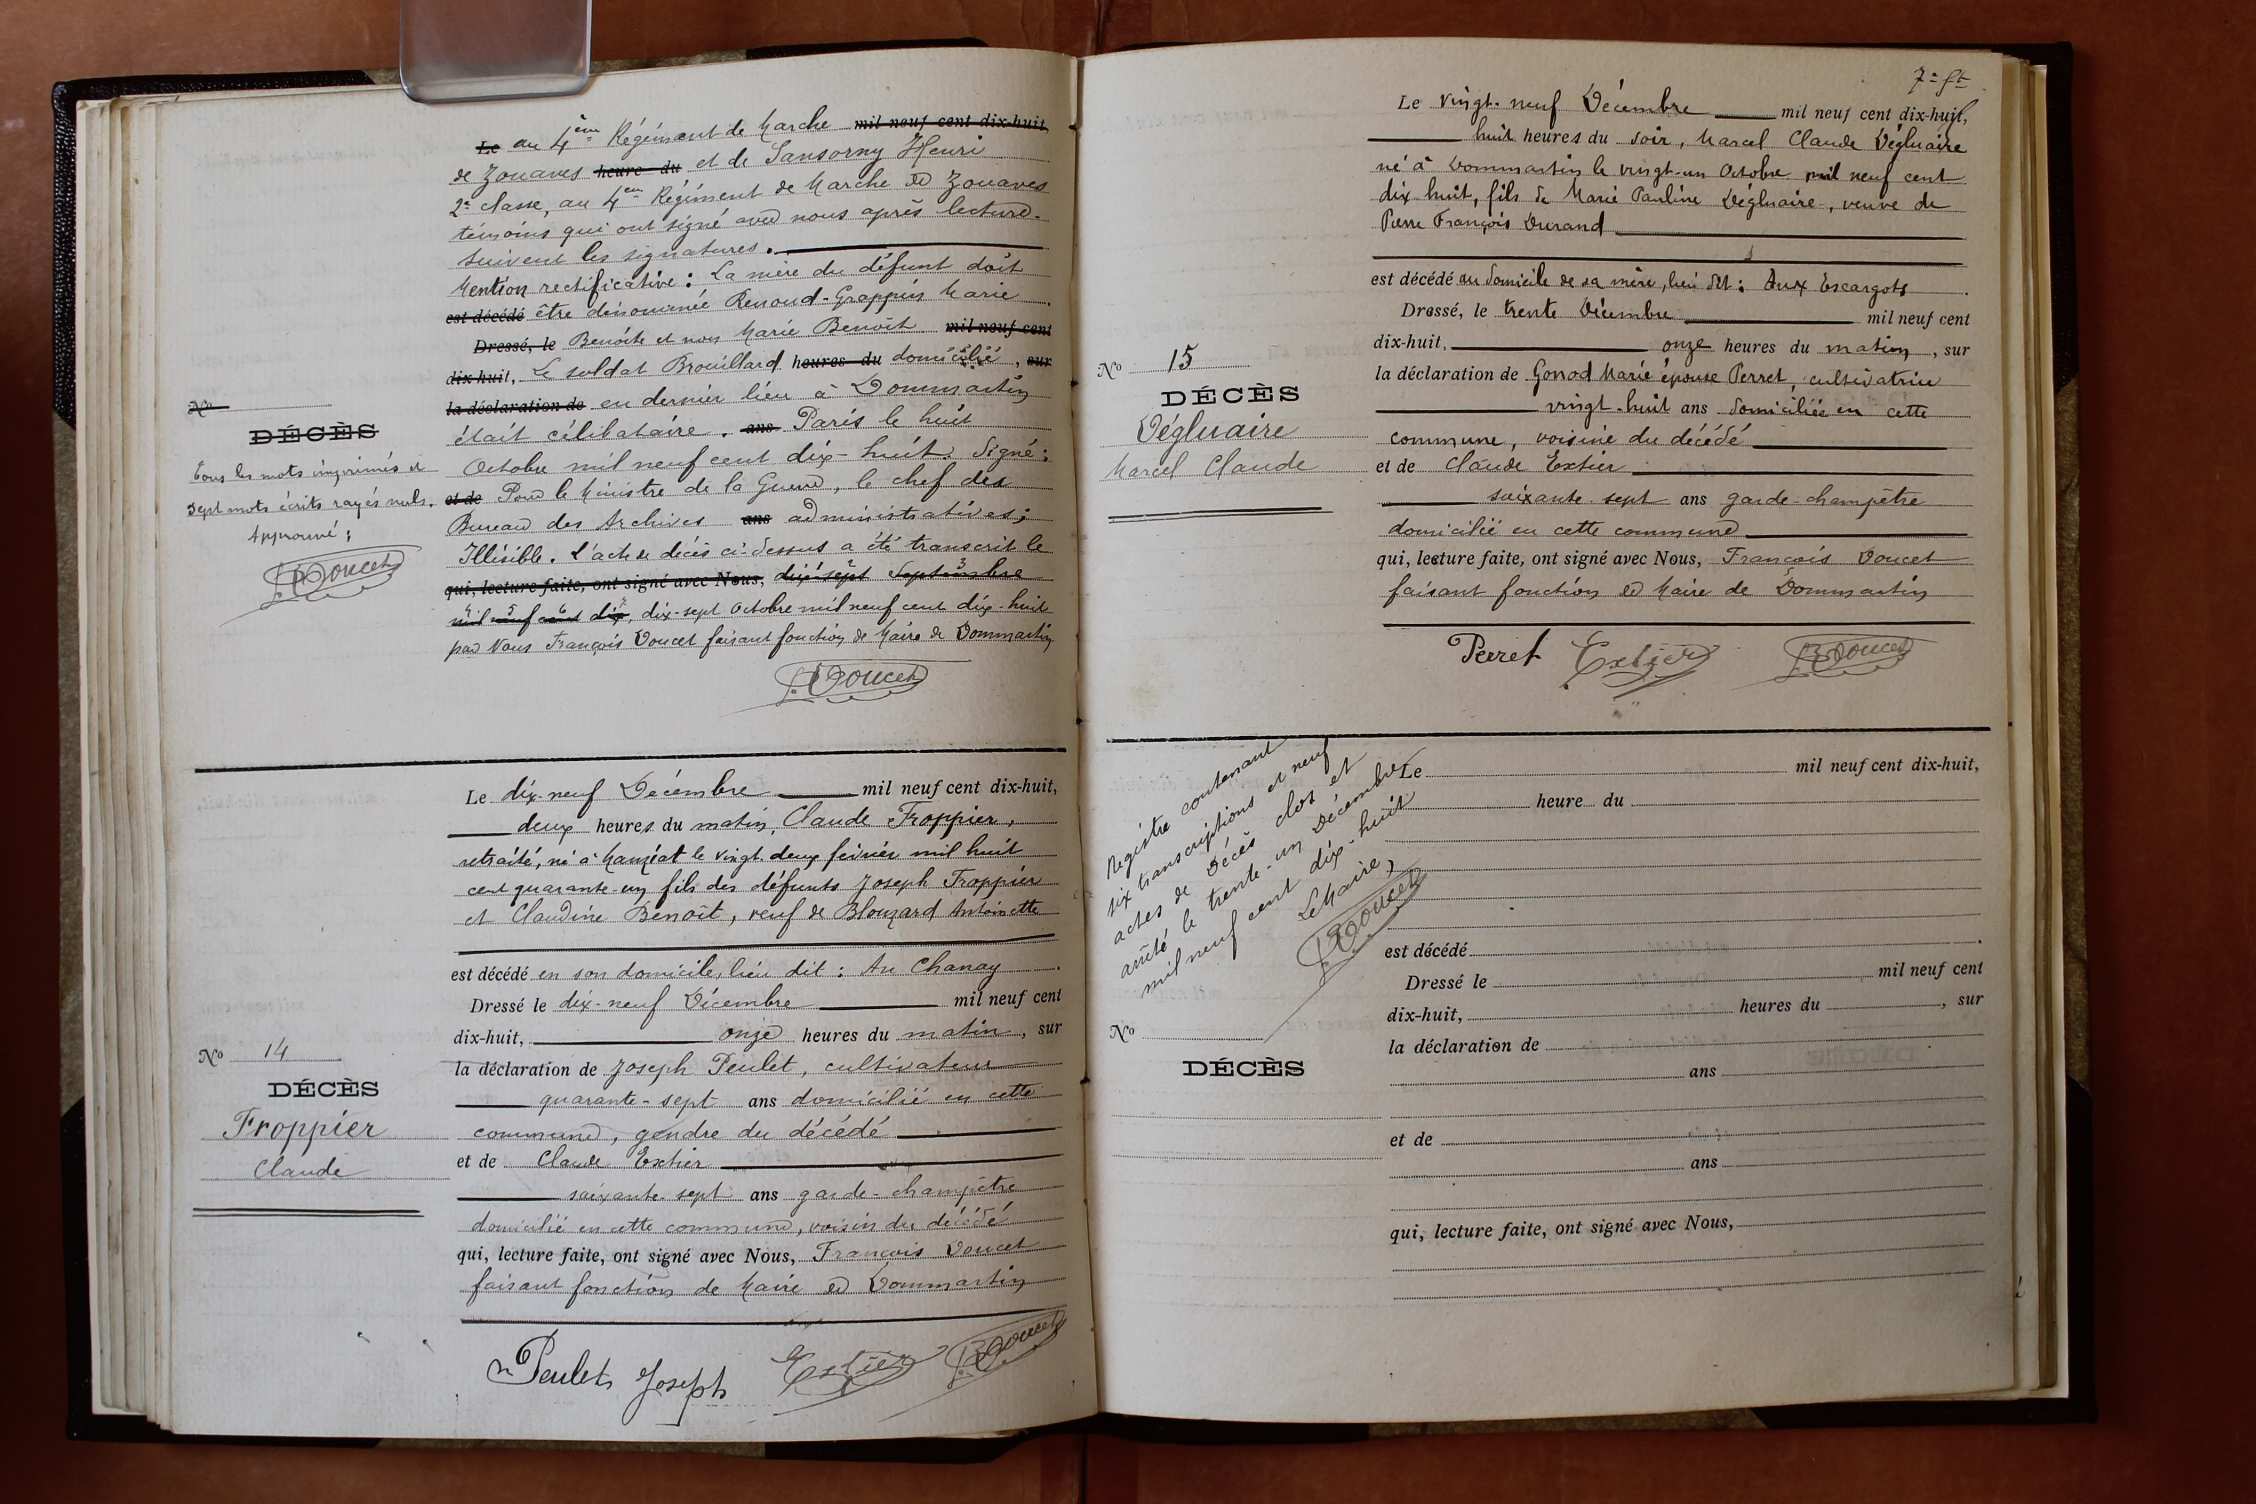 Le au 4ème Régiment de Marche mil neuf cent dix-huit,
de Zouaves heure du et de Sansorny Henri
2e classe, au 4em Régiment de Marche de Zouaves
témoins qui ont signé avec nous après lecture.
suivent les signatures.
Mention rectificative : La mère du défunt doit
est décédé être dénommée Renoud-Grappin Marie
Dressé, le Benoîte et non Marie Benoît mil neuf cent
dix-huit, Le soldat Brouillard heures du domicilié, sur
la déclaration de en dernier lieu à Dommartin
était célibataire. ans Paris le huit
Octobre mil neuf cent dix-huit. Signé :
et de Pour le Ministre de la Guerre, le chef des
Bureau des Archives ans administratives ;
Illisible. L'acte de décès ci-dessus a été transcrit le
qui, lecture faite, ont signé avec Nous, dix-sept Septembre
mil neuf cent dix, dix-sept Octobre mil neuf cent dix-huit
par Nous François Doucet faisant fonction de Maire de Dommartin
Doucet
No
DÉCÈS
Tous les mots imprimés et
sept mots écrits rayés nuls.
Approuvé :
Doucet
Le dix-neuf Décembre mil neuf cent dix-huit,
deux heures du matin, Claude Froppier,
retraité, né à Manziat le vingt-deux février mil huit
cent quarante-un fils des défunts Joseph Froppier
et Claudine Benoît, veuf de Blouzard Antoinette
est décédé en son domicile, lieu dit : Au Chanay.
Dressé le dix-neuf Décembre mil neuf cent
dix-huit, onze heures du matin, sur
la déclaration de Joseph Peulet, cultivateur
quarante-sept ans domicilié en cette
commune, gendre du décédé
et de Claude Extier
soixante-sept ans garde-champêtre
domicilié en cette commune, voisin du décédé
qui, lecture faite, ont signé avec Nous, François Doucet
faisant fonction de Maire de Dommartin
No 14
DÉCÈS
Froppier
Claude
Peulet Joseph Extier Doucet
7e ft
Le vingt-neuf Décembre mil neuf cent dix-huit,
huit heures du soir, Marcel Claude Dégluaire
né à Dommartin le vingt-un Octobre mil neuf cent
dix huit, fils de Marie Pauline Dégluaire, veuve de
Pierre François Durand
est décédé au domicile de sa mère, lieu dit : Aux Escargots.
Dressé, le trente Décembre mil neuf cent
dix-huit, onze heures du matin, sur
la déclaration de Gonod Marie épouse Perret, cultivatrice
vingt-huit ans domiciliée en cette
commune, voisine du décédé
et de Claude Extier
soixante-sept ans garde-champêtre
domicilié en cette commune
qui, lecture faite, ont signé avec Nous, François Doucet
faisant fonction de Maire de Dommartin
No 15
DÉCÈS
Dégluaire
Marcel Claude
Perret Extier Doucet
Registre contenant
six transcriptions et neuf
actes de Décès clos et
arrêté le trente-un Décembre
mil neuf cent dix-huit
Le Maire,
Doucet
Le mil neuf cent dix-huit,
heure du
est décédé
Dressé le mil neuf cent
dix-huit, heures du , sur
la déclaration de
ans
et de
ans
qui, lecture faite, ont signé avec Nous,
No
DÉCÈS